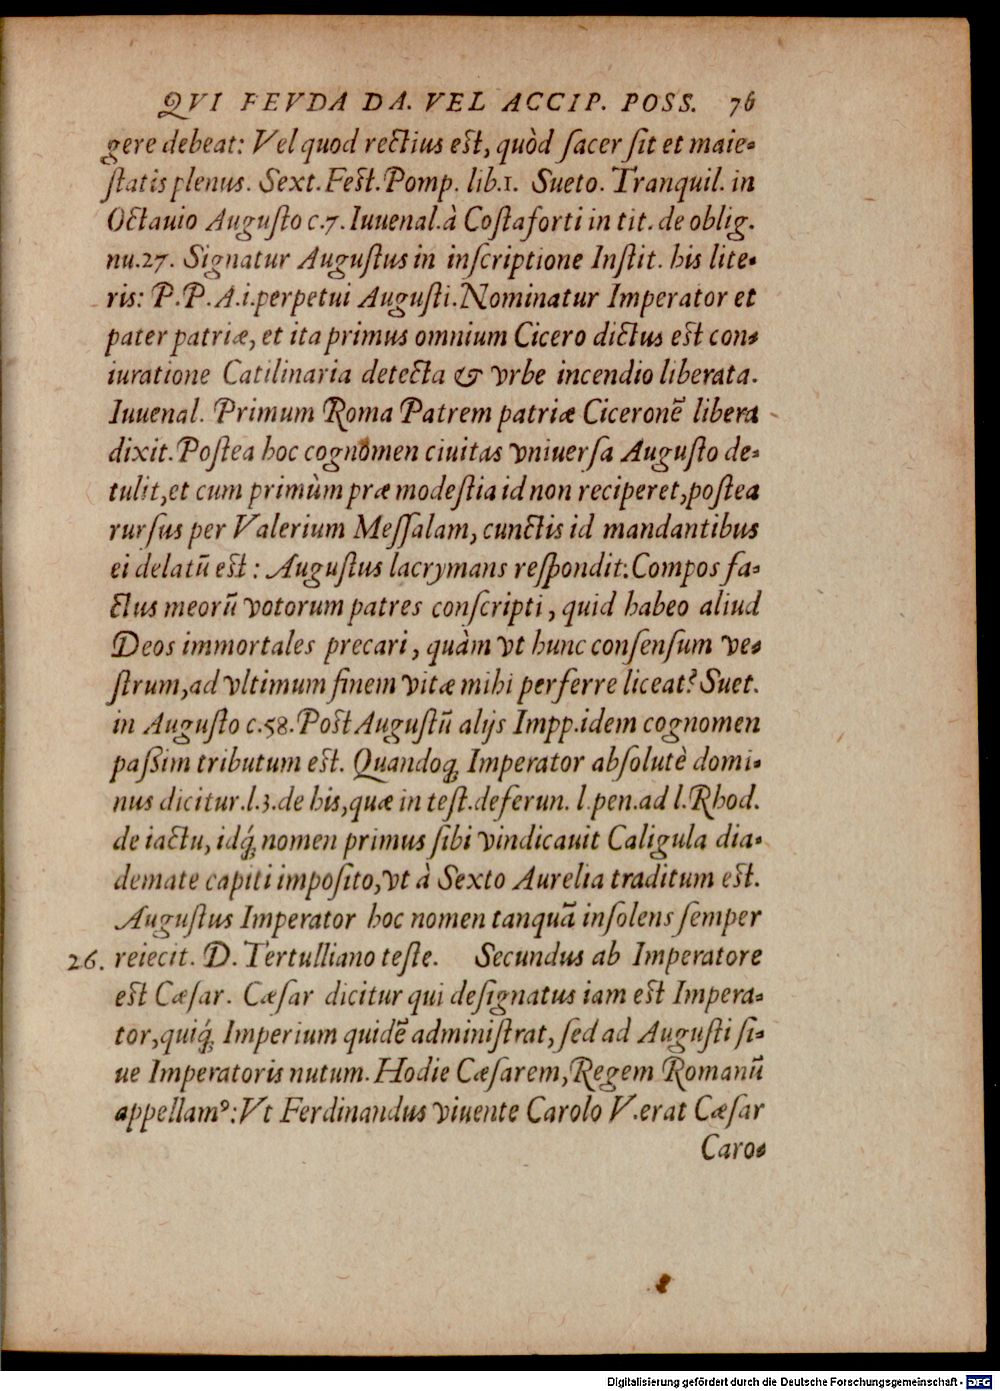 QVI FEVDA DA. VEL ACCIP. POSS. 76
gere debeat: Vel quod rectius est, quòd sacer sit et maie-
statis plenus. Sext. Fest. Pomp. lib.1. Sueto. Tranquil. in
Octauio Augusto c.7. Iuuenal. à Costaforti in tit. de oblig.
nu.27. Signatur Augustus in inscriptione Instit. his lite-
ris: P.P.A.i.perpetui Augusti. Nominatur Imperator et
pater patriæ, et ita primus omnium Cicero dictus est con-
iuratione Catilinaria detecta & vrbe incendio liberata.
Iuuenal. Primum Roma Patrem patriæ Ciceronē libera
dixit. Postea hoc cognomen ciuitas vniuersa Augusto de-
tulit, et cum primùm præ modestia id non reciperet, postea
rursus per Valerium Messalam, cunctis id mandantibus
ei delatū est: Augustus lacrymans respondit: Compos fa-
ctus meorū votorum patres conscripti, quid habeo aliud
Deos immortales precari, quàm vt hunc consensum ve-
strum, ad vltimum finem vitæ mihi perferre liceat? Suet.
in Augusto c.58. Post Augustū alijs Impp. idem cognomen
paßim tributum est. Quandoq; Imperator absolutè domi-
nus dicitur. l.3. de his, quæ in test. deferun. l. pen. ad l. Rhod.
de iactu, idq́; nomen primus sibi vindicauit Caligula dia-
demate capiti imposito, vt à Sexto Aurelia traditum est.
Augustus Imperator hoc nomen tanquā insolens semper
26. reiecit. D. Tertulliano teste. Secundus ab Imperatore
est Cæsar. Cæsar dicitur qui designatus iam est Impera-
tor, quiq́; Imperium quidē administrat, sed ad Augusti si-
ue Imperatoris nutum. Hodie Cæsarem, Regem Romanū
appellamꝰ: Vt Ferdinandus viuente Carolo V. erat Cæsar
Caro-
Digitalisierung gefördert durch die Deutsche Forschungsgemeinschaft - DFG